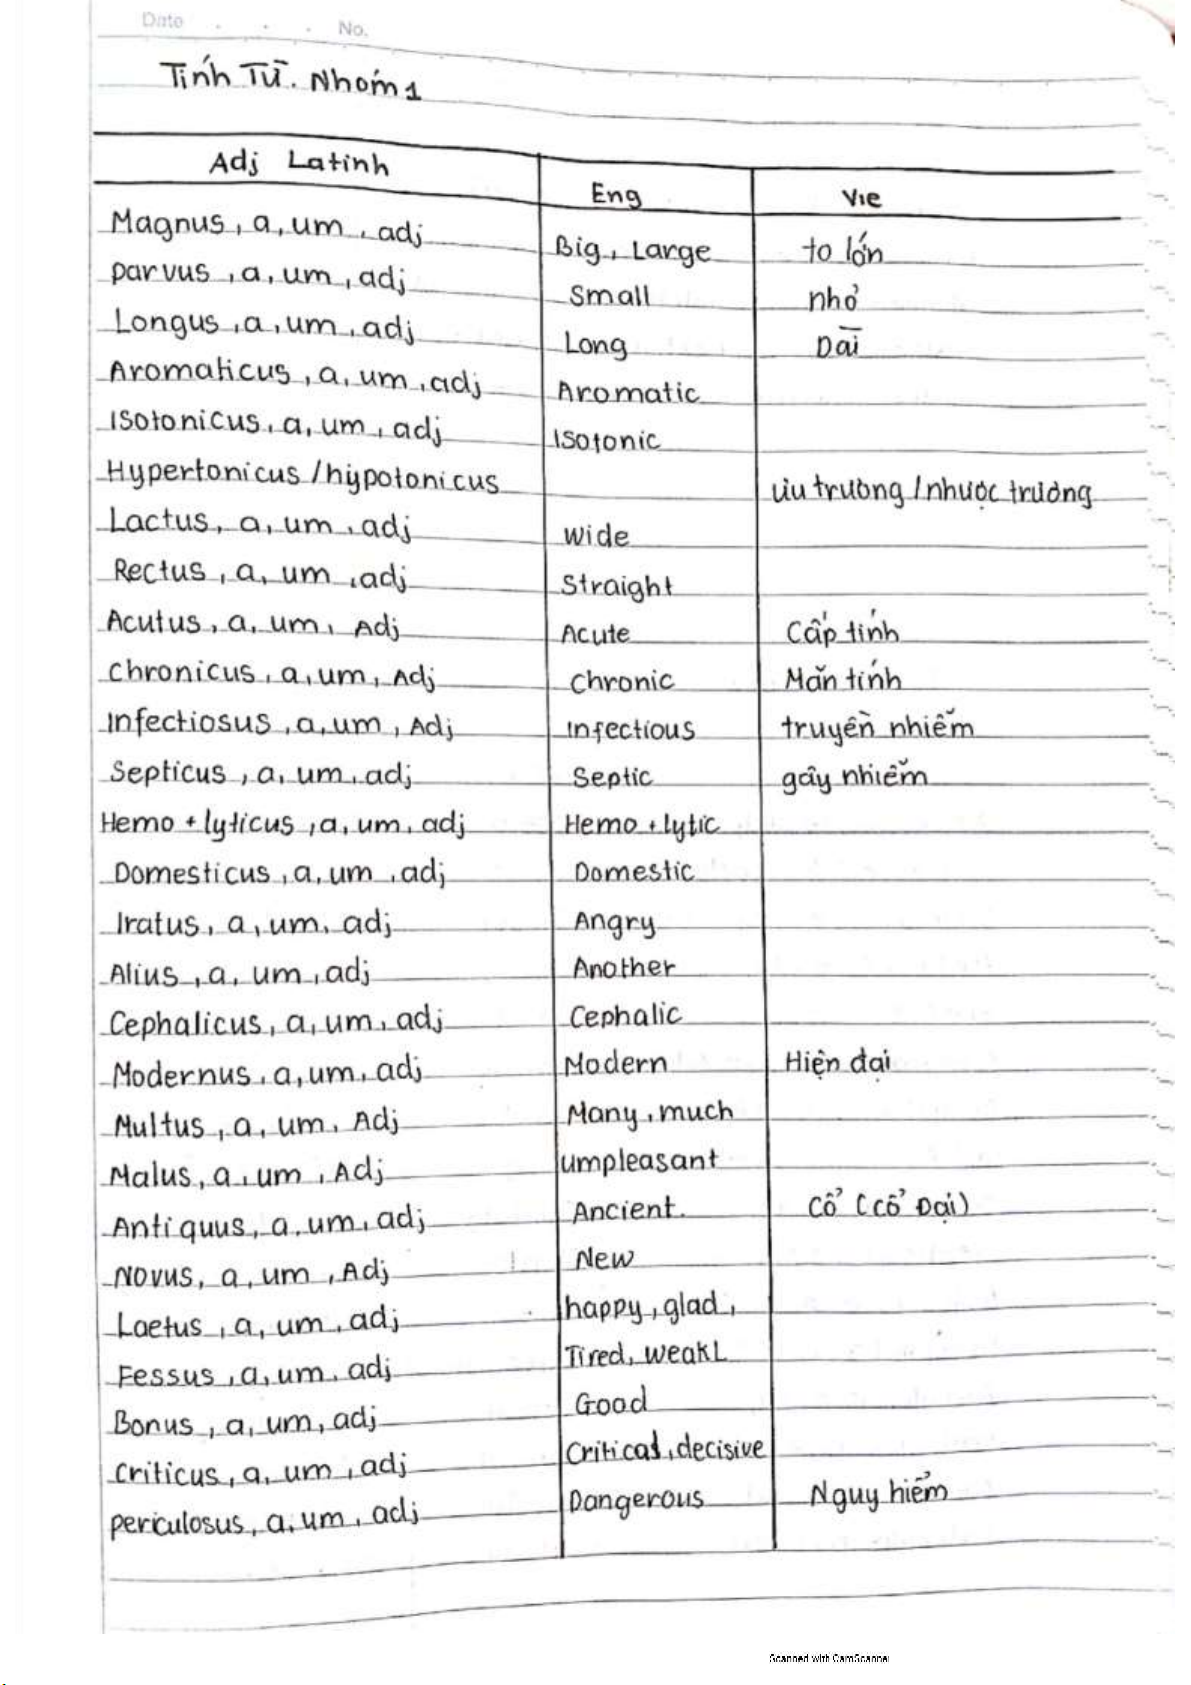 Date . . . No.
Tính Từ. Nhóm 1
Adj Latinh Eng Vie
Magnus, a, um, adj Big, Large to lớn
parvus, a, um, adj Small nhỏ
Longus, a, um, adj Long Dài
Aromaticus, a, um, adj Aromatic
Isotonicus, a, um, adj Isotonic
Hypertonicus / hypotonicus ưu trương / nhược trương
Lactus, a, um, adj Wide
Rectus, a, um, adj Straight
Acutus, a, um, Adj Acute Cấp tính
Chronicus, a, um, Adj Chronic Mãn tính
Infectiosus, a, um, Adj Infectious truyền nhiễm
Septicus, a, um, adj Septic gây nhiễm
Hemo + lyticus, a, um, adj Hemo + lytic
Domesticus, a, um, adj Domestic
Iratus, a, um, adj Angry
Alius, a, um, adj Another
Cephalicus, a, um, adj Cephalic
Modernus, a, um, adj Modern Hiện đại
Multus, a, um, Adj Many, much
Malus, a, um, Adj umpleasant
Antiquus, a, um, adj Ancient. Cổ (cổ Đại)
Novus, a, um, Adj New
Laetus, a, um, adj happy, glad,
Fessus, a, um, adj Tired, weakl
Bonus, a, um, adj Good
Criticus, a, um, adj Critical, decisive
periculosus, a, um, adj Dangerous Nguy hiểm
Scanned with CamScanner